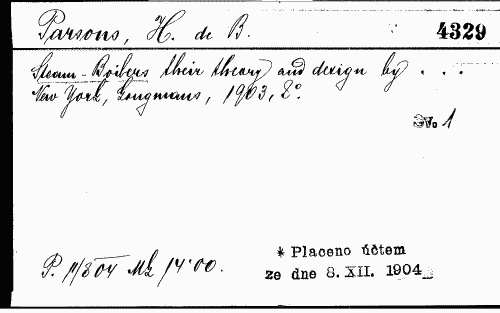 Parsons, H. de B. 4329
Steam-Boilers their theory and design by . . .
New York, Longmans, 1903, 8°.
Sv. 1
* Placeno účtem
P. 11/8 04 Mk 14·00.
ze dne 8. XII. 1904